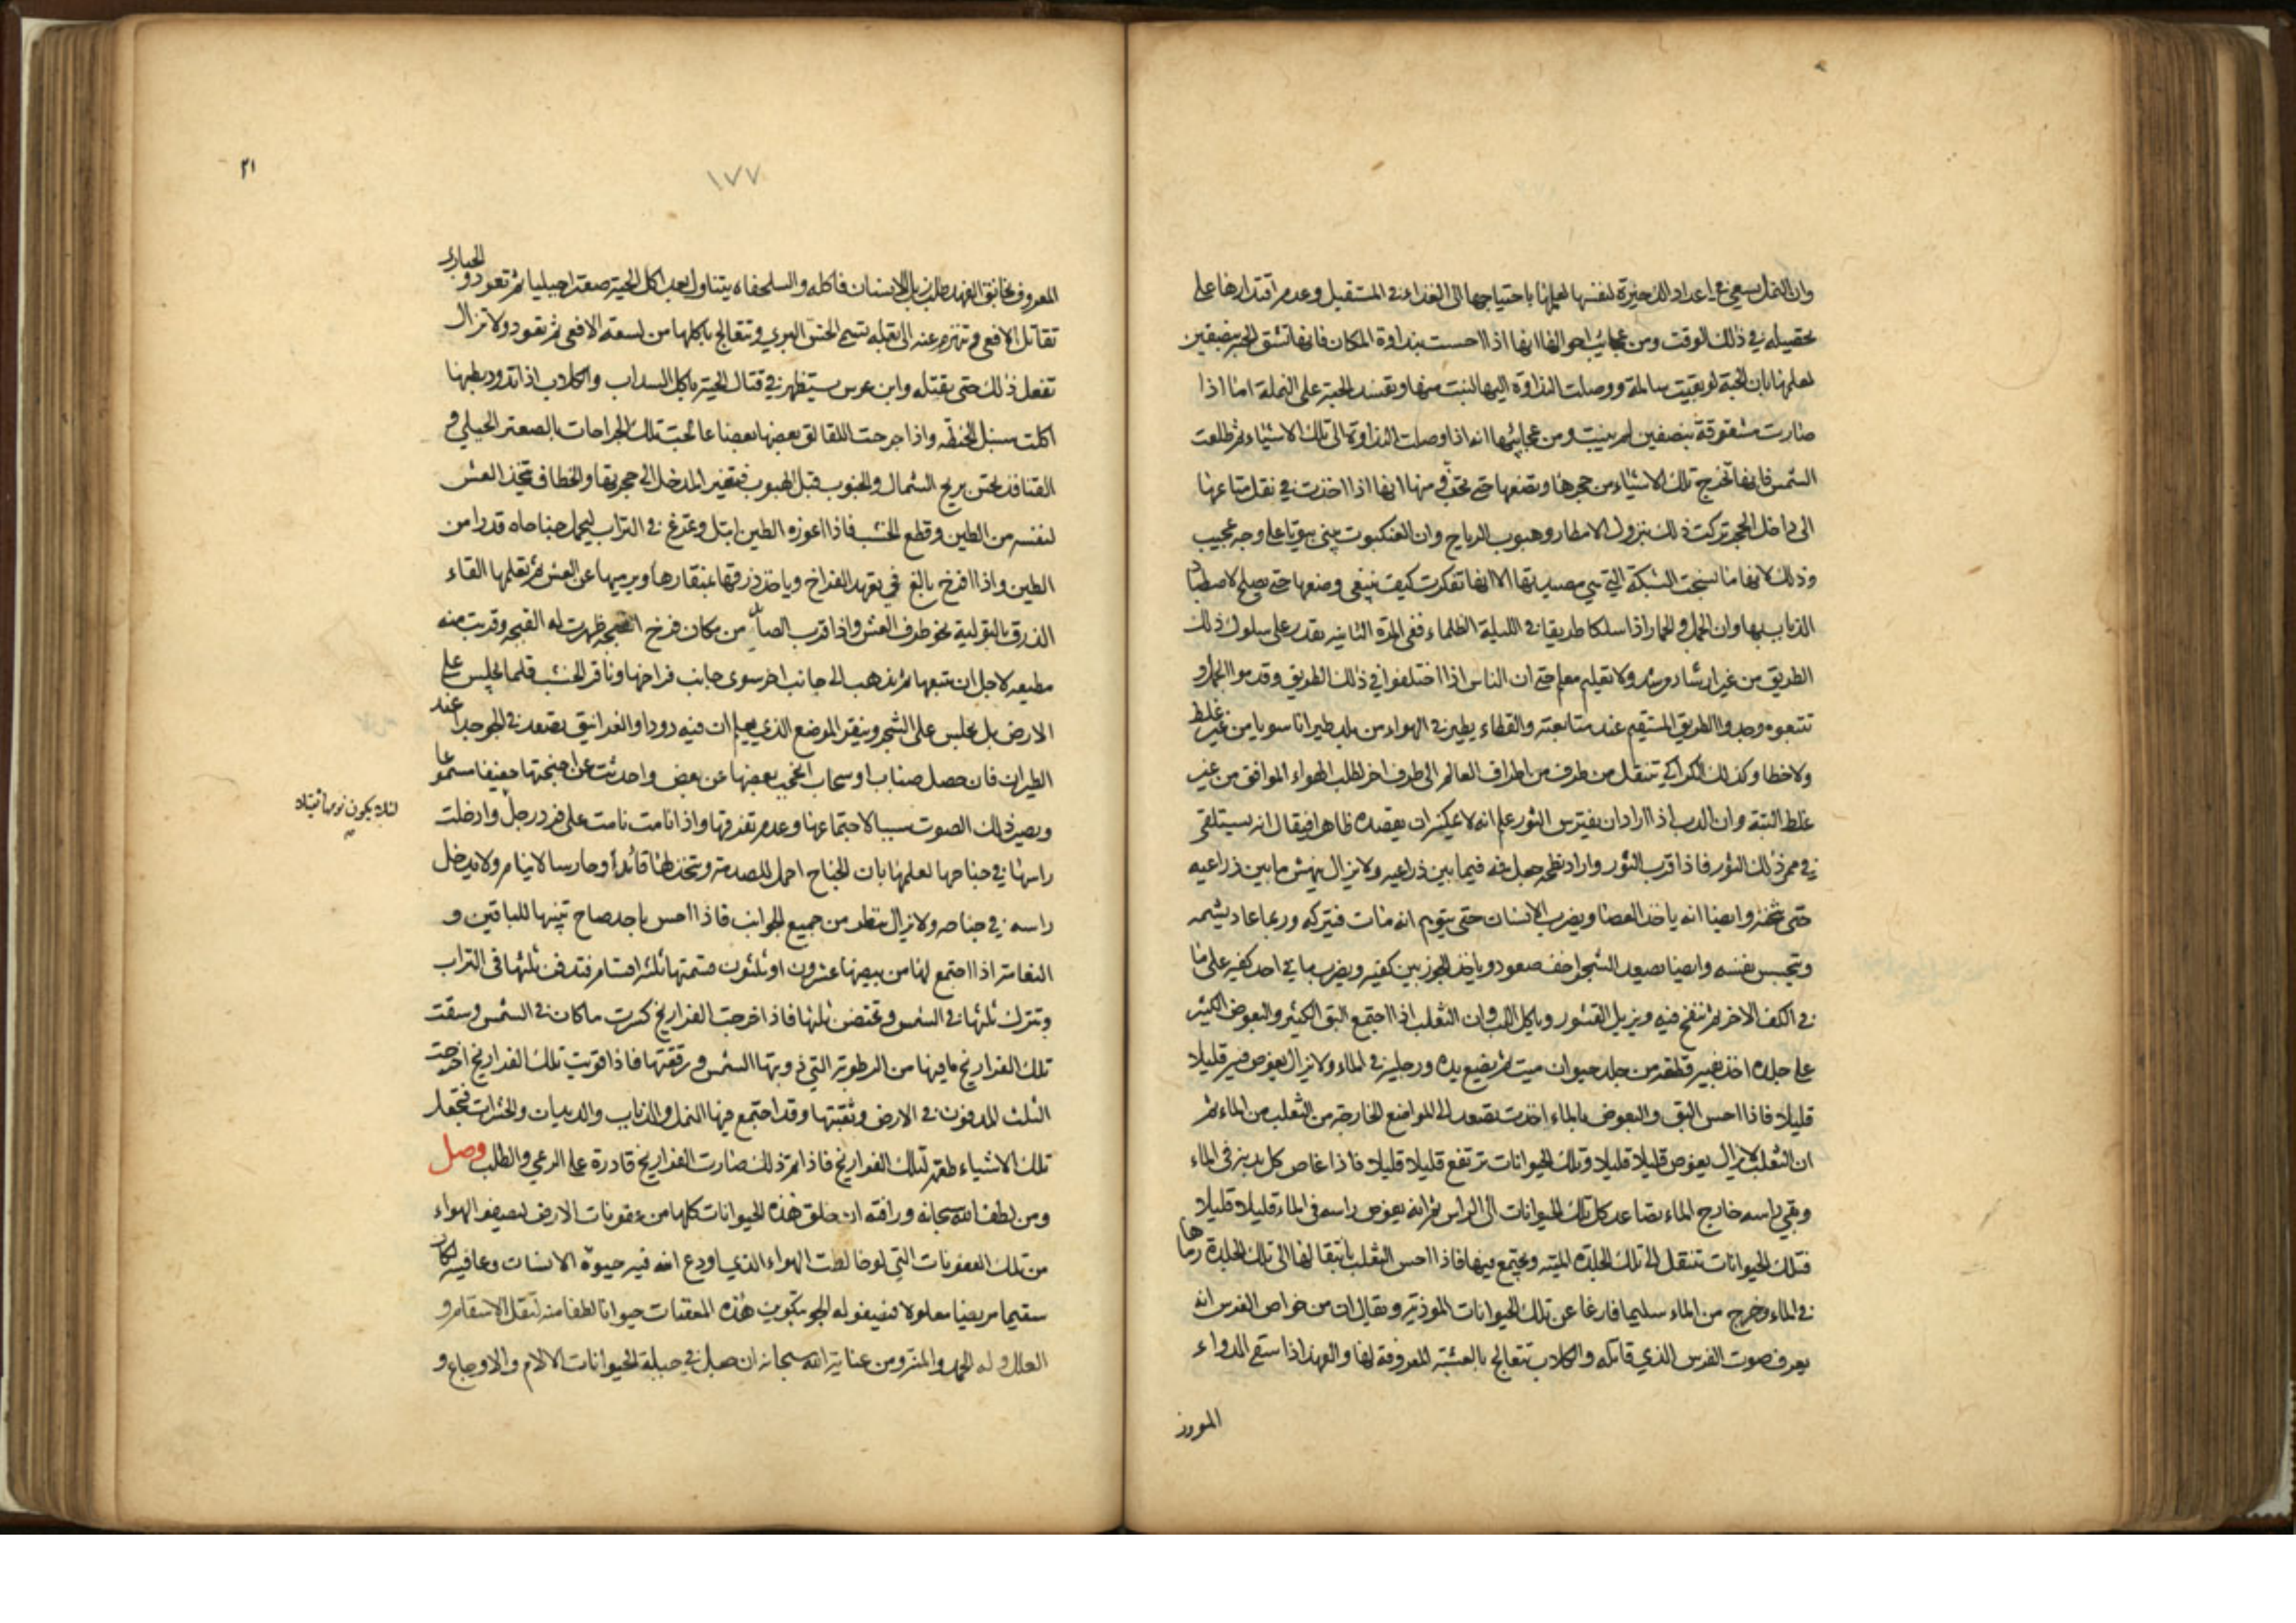 وان النمل يسعى في اعداد الذخيرة لنفسها لعلمها باحتياجها الى الغذاء في المستقبل وعدم اقتدارها على
تحصيله في ذلك الوقت ومن عجائب احوالها انها اذا احست بنداوة المكان فانها تشق الحبة بنصفين
لعلمها بان الحبة لو بقيت سالمة ووصلت النداوة اليها لنبتت منها وتفسد الحبة على النملة اما اذا
صارت مشقوقة بنصفين لم ينبت ومن عجائبها انه اذا وصلت النداوة الى تلك الاشياء ثم طلعت
الشمس فانها تخرج تلك الاشياء من حجرها وتضعها حتى تجف ومنها انها اذا اخذت في نقل متاعها
الى داخل الحجر تركت ذلك بنزول الامطار وهبوب الرياح وان العنكبوت يبنى بيوتا على وجه عجيب
وذلك لانها ما نسجت الشبكة التي هي مصيدتها الا انها تفكرت كيف ينبغي وضعها حتى يصلح لاصطياد
الذباب بها وان الجمل والحمار اذا سلكا طريقا في الليلة الظلماء ففي المرة الثانية يقدر على سلوك ذلك
الطريق من غير ارشاد مرشد ولا تعليم معلم حتى ان الناس اذا اختلفوا في ذلك الطريق وقدموا الجمل و
تتبعوه وجدوا الطريق المستقيم عند متابعته والقطاء يطير في الهواء من بلد طيرانا سويا من غير غلط
ولا خطا وكذلك الكراكي تنتقل من طرف من اطراف العالم الى طرف اخر لطلب الهواء الموافق من غير
غلط البتة وان الدب اذا اراد ان يفترس الثور علم انه لا يمكنه ان يقصده ظاهرا فيقال انه يستلقي
في ممر ذلك الثور فاذا قرب الثور واراد نطحه جعل قرنيه فيما بين ذراعيه ولا يزال ينهش ما بين ذراعيه
حتى يثخنه وايضا انه ياخذ العصا ويضرب الانسان حتى يتوهم انه مات فيتركه وربما عاد يشمه
ويتجسس نفسه وايضا يصعد الشجر اخف صعود وياخذ الجوز بين كفيه ويضرب ما في احد كفيه على ما
في الكف الاخر ثم ينفخ فيه ويزيل القشور وياكل اللب وان الثعلب اذا اجتمع البق الكثير والبعوض الكثير
على جلده اخذ بفيه قطعة من جلد حيوان ميت ثم يضع يده ورجليه في الماء ولا يزال يغوص فيه قليلا
قليلا فاذا احس البق والبعوض بالماء اخذت تصعد الى المواضع الخارجة من الثعلب من الماء ثم
ان الثعلب لا يزال يغوص قليلا قليلا وتلك الحيوانات ترتفع قليلا قليلا فاذا غاص كل بدنه في الماء
وبقي راسه خارج الماء تصاعد كل تلك الحيوانات الى الراس ثم انه يغوص راسه في الماء قليلا قليلا
فتلك الحيوانات تنتقل الى تلك الجلدة الميتة وتجتمع فيها فاذا احس الثعلب بانتقالها الى تلك الجلدة رماها
في الماء وخرج من الماء سليما فارغا عن تلك الحيوانات الموذية ويقال ان من خواص الفرس انه
يعرف صوت الفرس الذي قاتله والكلاب تتعالج بالعشبة المعروفة لها والفهد اذا سقي الدواء
المعروف بخانق الفهد طلب زبل الانسان فاكله والسلحفاة يتناول بعد اكل الحية صعترا جبليا ثم تعود والحبارى
تقاتل الافعى وتنهزم عنه الى بقلة يسمى الخس البري وتتعالج باكلها من لسعة الافعى ثم تعود ولا تزال
تفعل ذلك حتى يقتله وابن عرس يستظهر في قتال الحية باكل السداب والكلاب اذا تدود بطنها
اكلت سنبل الحنطة واذا جرحت اللقالق بعضها بعضا عالجت تلك الجراحات بالصعتر الجبلي و
القنافذ تحس بريح الشمال والجنوب قبل الهبوب فتغير المدخل الى حجرتها والخطاف يتخذ العش
لنفسه من الطين وقطع الخشب فاذا اعوزه الطين ابتل وتمرغ في التراب ليحمل جناحاه قدرا من
الطين واذا افرخ بالغ في تعهد الفراخ وياخذ ذرقها بمنقارها ويرميها عن العش ثم تعلمها القاء
الذرق بالتولية نحو طرف العش واذا قرب الصائد من مكان فرخ القبجة ظهرت له القبجة وقربت منه
مطيعة لاجل ان يتبعها ثم يذهب الى جانب اخر سوى جانب فراخها وناقر الخشب قلما يجلس على
الارض بل يجلس على الشجر وينقر الموضع الذي يعلم ان فيه دودا والغرانيق تصعد في الجو جدا عند
الطيران فان حصل ضباب او سحاب يحجب بعضها عن بعض واحدثت عن اجنحتها حفيفا مسموعا
ويصير ذلك الصوت سببا لاجتماعها وعدم تفرقها واذا نامت نامت على فرد رجل وادخلت
راسها في جناحها لعلمها بان الجناح احمل للصدمة ويتخذ لها قائدا وحارسا لا ينام ولا يدخل
راسه في جناحه ولا يزال ينظر من جميع الجوانب فاذا احس باحد صاح تنبيها للباقين و
النعامة اذا اجتمع لها من بيضها عشرون او ثلثون قسمتها ثلثة اقسام فتدفن ثلثها في التراب
وتترك ثلثها في الشمس وتحتضن ثلثها فاذا اخرجت الفراريخ كسرت ما كان في الشمس وسقت
تلك الفراريخ ما فيها من الرطوبة التي ذوبتها الشمس ورققتها فاذا قويت تلك الفراريخ اخرجت
الثلث المدفون في الارض وثقبتها وقد اجتمع فيها النمل والذباب والديدان والحشرات فتجعل
تلك الاشياء طعمة لتلك الفراريخ فاذا تم ذلك صارت الفراريخ قادرة على الرعي والطلب وصل
ومن لطف الله سبحانه ورافته ان خلق هذه الحيوانات كلها من عفونات الارض ليصفو الهواء
من تلك العفونات التي لو خالطت الهواء الذي اودع الله فيه حيوة الانسان وعافيته لكان
سقيما مريضا معلولا فيصفو له الجو بتكوين هذه المعفنات حيوانا لطفا منه لتقل الاسقام و
العلل وله الحمد والمنة ومن عناية الله سبحانه ان جعل في جبلة الحيوانات الالام والاوجاع و
٢١
١٧٧
لئلا يكون نومها ثقيلا